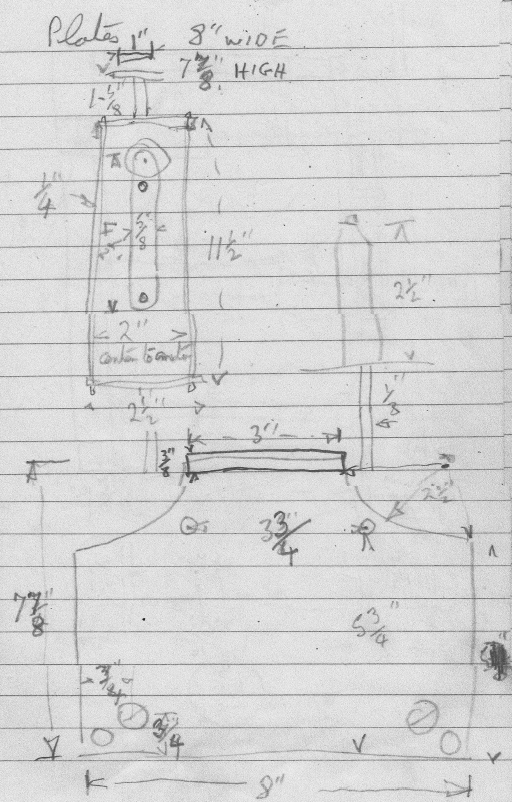 Plates 1" 8" WIDE
7 7/8" HIGH
1-1/8"
1/4"
5/8
11 1/2"
2 1/2"
2"
center to center
2 1/2"
1/8"
3"
3/8"
2 1/2"
3 3/4"
7 7/8"
5 3/4"
3/4"
3/4"
8"